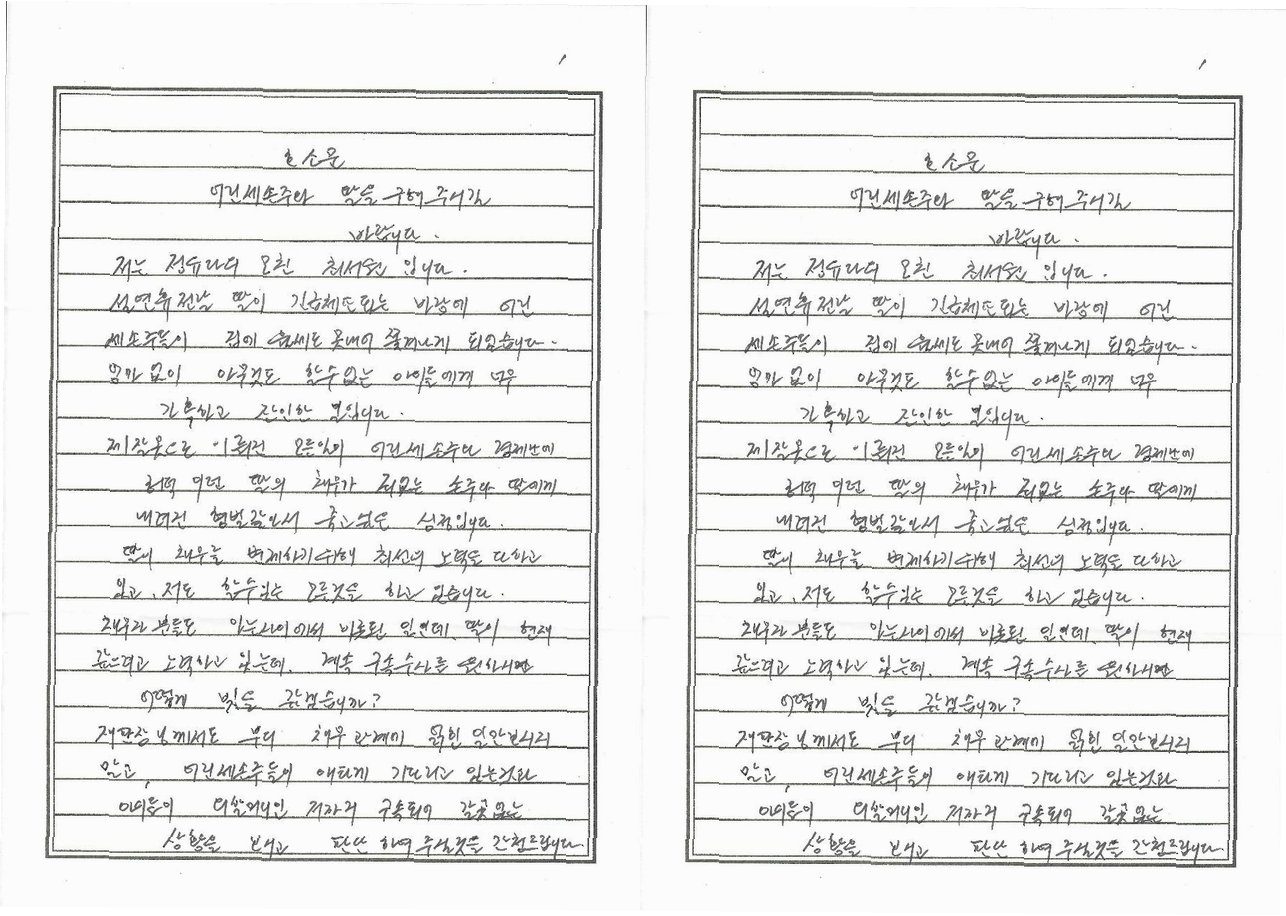 호소문
어린 세손주와 딸을 구해 주시길
바랍니다.
저는 정유라의 모친 최서원 입니다.
설연휴전날 딸이 긴급체포되는 바람에 어린
세손주들이 집에 올새도 못내어 쫓겨나게 되었습니다.
엄마 없이 아무것도 할수없는 아이들에게 너무
가혹하고 잔인한 일입니다.
제 잘못으로 이뤄진 모든일이 어린 세 손주의
이런 딸의 채무가 죄없는 손주와 딸에게
내려진 형벌같아서 죽고싶은 심정입니다.
딸의 채무를 변제하기위해 최선의 노력을 다하고
있고, 저도 할수있는 모든것을 하고 있습니다.
채무자 분들도 아는사이에서 비롯된 일인데, 딸이 현재
갚으려고 노력하고 있는데, 계속 구속수사를 원하시면
어떻게 빚을 갚겠습니까?
재판장님께서도 부디 채무관계에 얽힌 일만보시지
말고, 어린세손주들이 애타게 기다리고 있는것과
이들이 외할머니인 저마저 구속되어 갈곳없는
상황을 보시고 판단 하여 주실것을 간청드립니다
호소문
어린 세손주와 딸을 구해 주시길
바랍니다.
저는 정유라의 모친 최서원 입니다.
설연휴전날 딸이 긴급체포되는 바람에 어린
세손주들이 집에 올새도 못내어 쫓겨나게 되었습니다.
엄마 없이 아무것도 할수없는 아이들에게 너무
가혹하고 잔인한 일입니다.
제 잘못으로 이뤄진 모든일이 어린 세 손주의
이런 딸의 채무가 죄없는 손주와 딸에게
내려진 형벌같아서 죽고싶은 심정입니다.
딸의 채무를 변제하기위해 최선의 노력을 다하고
있고, 저도 할수있는 모든것을 하고 있습니다.
채무자 분들도 아는사이에서 비롯된 일인데, 딸이 현재
갚으려고 노력하고 있는데, 계속 구속수사를 원하시면
어떻게 빚을 갚겠습니까?
재판장님께서도 부디 채무관계에 얽힌 일만보시지
말고, 어린세손주들이 애타게 기다리고 있는것과
이들이 외할머니인 저마저 구속되어 갈곳없는
상황을 보시고 판단 하여 주실것을 간청드립니다